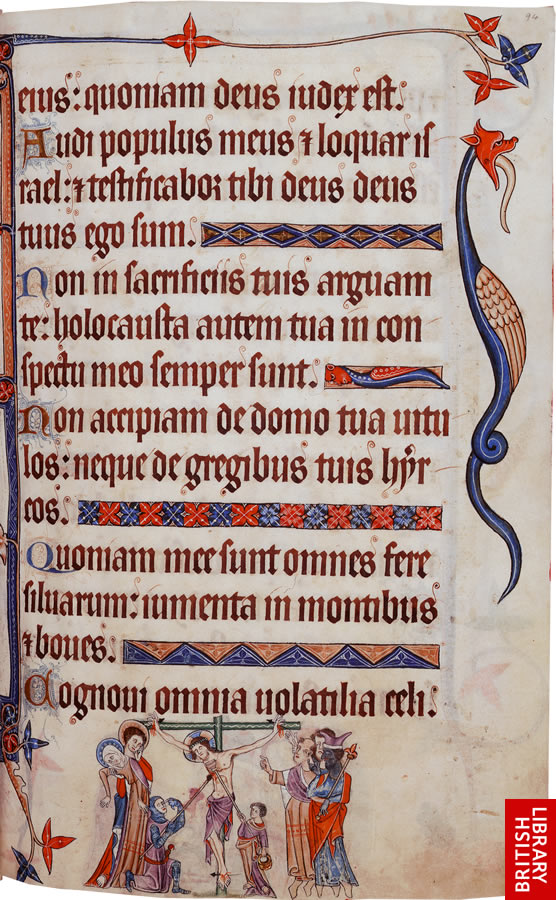 94
eius: quoniam deus iudex est.
Audi populus meus ⁊ loquar is
rael: ⁊ testificabor tibi deus deus
tuus ego sum.
Non in sacrificiis tuis arguam
te: holocausta autem tua in con
spectu meo semper sunt.
Non accipiam de domo tua uitu
los: neque de gregibus tuis hyr
cos.
Quoniam mee sunt omnes fere
siluarum: iumenta in montibus
⁊ boues.
Cognoui omnia uolatilia celi:
BRITISH
LIBRARY